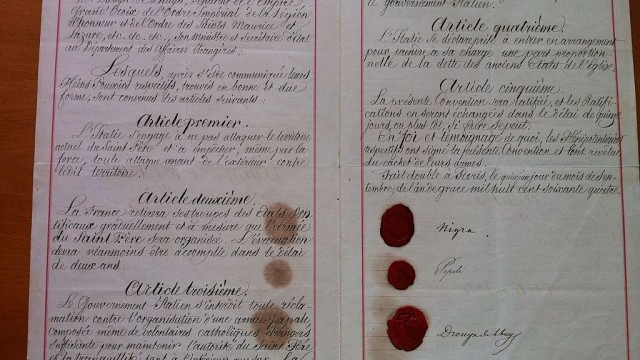 Sénateur de l'Empire,
Grand'Croix de l'Ordre Impérial de la Légion
d'Honneur et de l'Ordre des Saints Maurice et
Lazare, etc. etc. etc., son Ministre et Secrétaire d'État
au Département des Affaires Étrangères;
Lesquels, après s'être communiqué leurs
Pleins Pouvoirs respectifs, trouvés en bonne et due
forme, sont convenus des articles suivants:
Article premier.
L'Italie s'engage à ne pas attaquer le territoire
actuel du Saint Père et à empêcher, même par la
force, toute attaque venant de l'extérieur contre
ledit territoire.
Article deuxième.
La France retirera ses troupes des États Pon-
tificaux graduellement et à mesure que l'armée
du Saint Père sera organisée. L'évacuation
devra néanmoins être accomplie dans le délai
de deux ans.
Article troisième.
Le Gouvernement Italien s'interdit toute récla-
mation contre l'organisation d'une armée papale
composée même de volontaires catholiques étrangers
suffisante pour maintenir l'autorité du Saint Père
et la tranquillité tant à l'intérieur que sur la
le gouvernement Italien.
Article quatrième.
L'Italie se déclare prête à entrer en arrangement
pour prendre à sa charge une part proportion-
nelle de la dette des anciens États de l'Église.
Article cinquième.
La présente Convention sera ratifiée, et les Ratifi-
cations en seront échangées dans le délai de quinze
jours, ou plus tôt, si faire se peut.
En foi et témoignage de quoi, les Plénipotentiaires
respectifs ont signé la présente Convention et l'ont revêtue
du cachet de leurs armes.
Fait double à Paris, le quinzième jour du mois de Sep-
tembre, de l'an de grâce mil huit cent soixante quatre.
Nigra.
Pepoli
Drouyn de Lhuys